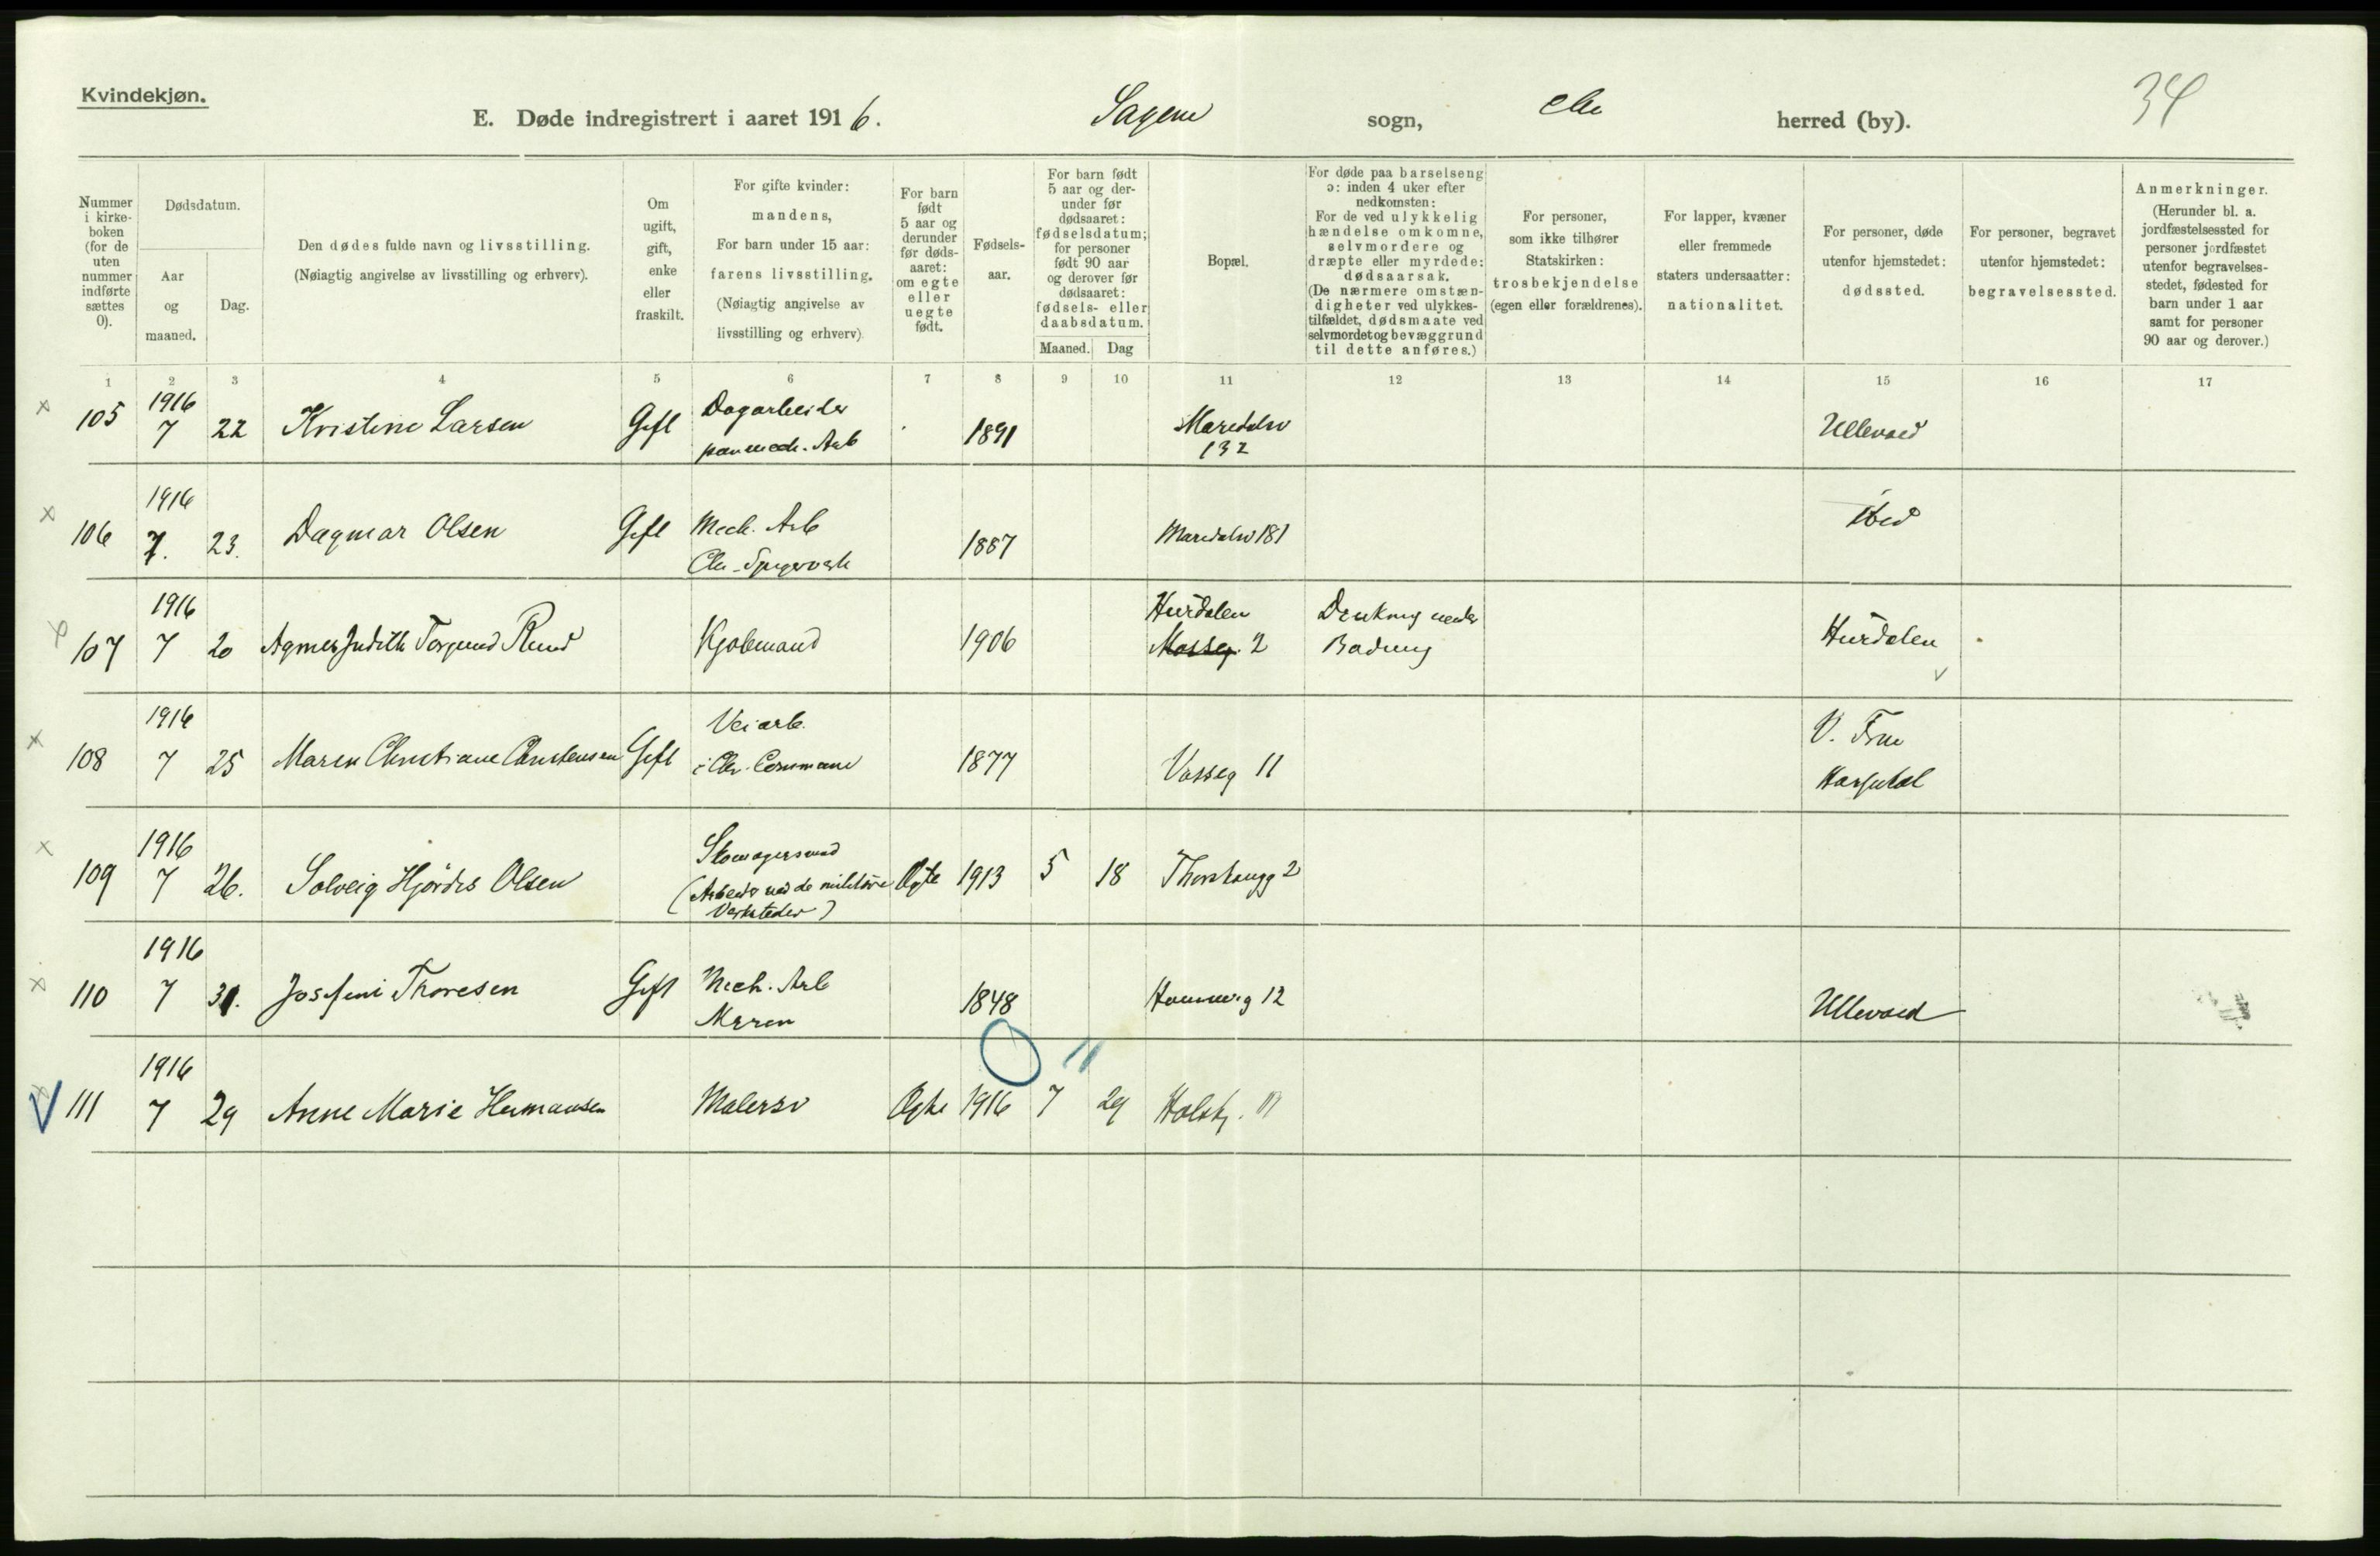 Kvindekjøn.
E. Døde indregistrert i aaret 1916. Sagene sogn, Chr herred (by). 34
Nummer i kirke- boken (for de uten nummer indførte sættes 0).
Dødsdatum.
Aar og maaned.
Dag.
Den dødes fulde navn og livsstilling.
(Nøiagtig angivelse av livsstilling og erhverv).
Om ugift, gift, enke eller fraskilt.
For gifte kvinder:
mandens,
For barn under 15 aar:
farens livsstilling.
(Nøiagtig angivelse av
livsstilling og erhverv)
For barn født 5 aar og derunder før døds- aaret: om egte eller uegte født.
Fødsels- aar.
For barn født 5 aar og der- under før dødsaaret: fødselsdatum; for personer født 90 aar og derover før dødsaaret: fødsels- eller daabsdatum.
Maaned. Dag
Bopæl.
For døde paa barselseng ɔ: inden 4 uker efter nedkomsten:
For de ved ulykkelig hændelse omkomne, selvmordere og dræpte eller myrdede: dødsaarsak.
(De nærmere omstæn- digheter ved ulykkes- tilfældet, dødsmaate ved selvmordet og bevæggrund til dette anføres.)
For personer, som ikke tilhører Statskirken: trosbekjendelse (egen eller forældrenes).
For lapper, kvæner eller fremmede staters undersaatter: nationalitet.
For personer, døde utenfor hjemstedet: dødssted.
For personer, begravet utenfor hjemstedet: begravelsessted.
Anmerkninger.
(Herunder bl. a. jordfæstelsessted for personer jordfæstet utenfor begravelses- stedet, fødested for barn under 1 aar samt for personer 90 aar og derover.)
1 2 3 4 5 6 7 8 9 10 11 12 13 14 15 16 17
x 105 1916 7 22 Kristine Larsen Gift Dagarbeider
paa mech. Arb 1891 Maridalsv
132 Ullevaal
x 106 1916 7. 23. Dagmar Olsen Gift Mech. Arb
Chr. Spigerverk 1887 Maridalsv 181 ibid
107 1916 7 20 Agnes Judith Rund Kjøbmand 1906 Hurdalen
Mosseg. 2 Drukning under
Badning Hurdalen
x 108 1916 7 25 Maren Christiane Christensen Gift Veiarb.
i Chr. Commune 1877 Vosseg 11 V. Frue
Hospital
x 109 1916 7 26. Solveig Hjördis Olsen Skomagersvend
(Arbeider ved de militære
Verksteder) Egte 1913 5 18 Thorshaugg 2
x 110 1916 7 31. Josefine Thoresen Gift Mech. Arb
Myren 1848 12 Ullevaal
111 1916 7 29 Anne Marie Hermansen Malersv Egte 1916 7 29 Holstg.